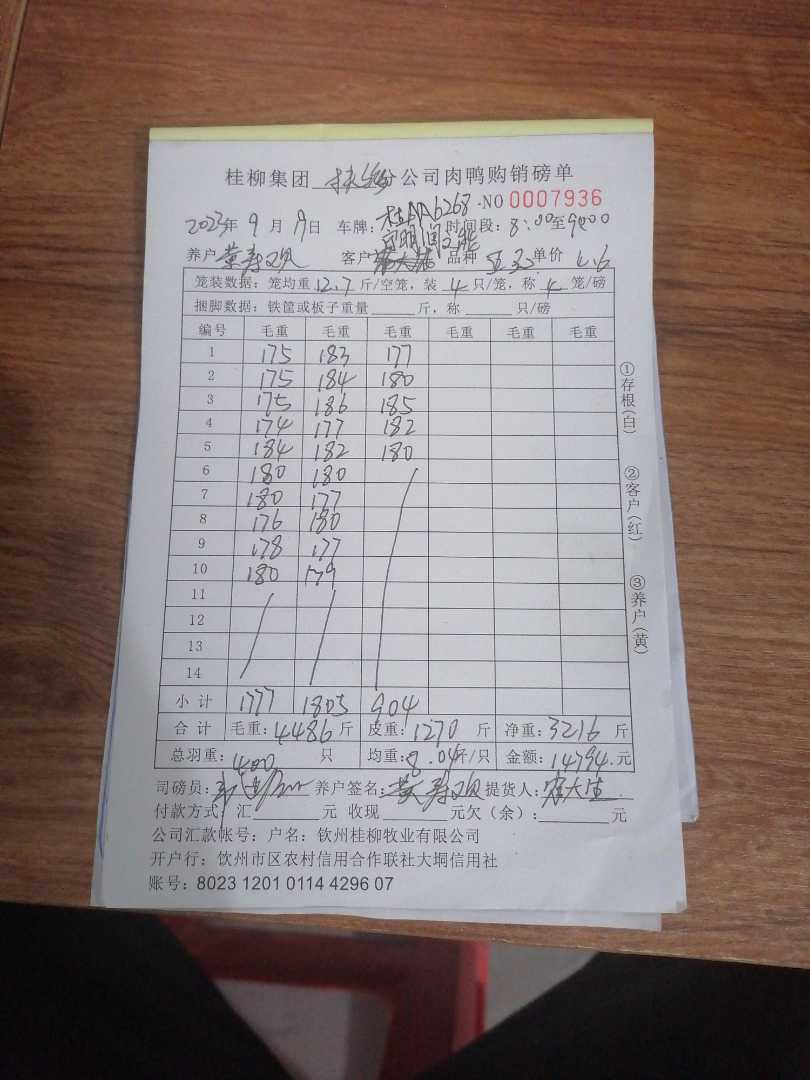 桂柳集团 扶绥分公司肉鸭购销磅单
NO 0007936
2023年 9 月 19日 车牌：桂AA6268 时间段：8:00至9:00
养户 黄寿 客户 品种 单价 4.6
笼装数据：笼均重 12.7 斤/空笼，装 4 只/笼，称 4 笼/磅
捆脚数据：铁筐或板子重量 斤，称 只/磅
编号 毛重 毛重 毛重 毛重 毛重 毛重
1 175 183 177
2 175 184 180
3 175 186 185
4 174 177 182
5 184 182 180
6 180 180
7 180 177
8 176 180
9 178 177
10 180 179
11
12
13
14
小计 1777 1805 904
合计 毛重：4486 斤 皮重：1270 斤 净重：3216 斤
总羽重：400 只 均重：8.04斤/只 金额：14794.元
司磅员： 养户签名：黄寿 提货人：
付款方式：汇 元 收现 元欠（余）： 元
公司汇款账号：户名：钦州桂柳牧业有限公司
开户行：钦州市区农村信用合作联社大垌信用社
账号：8023 1201 0114 4296 07
①存根（白）
②客户（红）
③养户（黄）